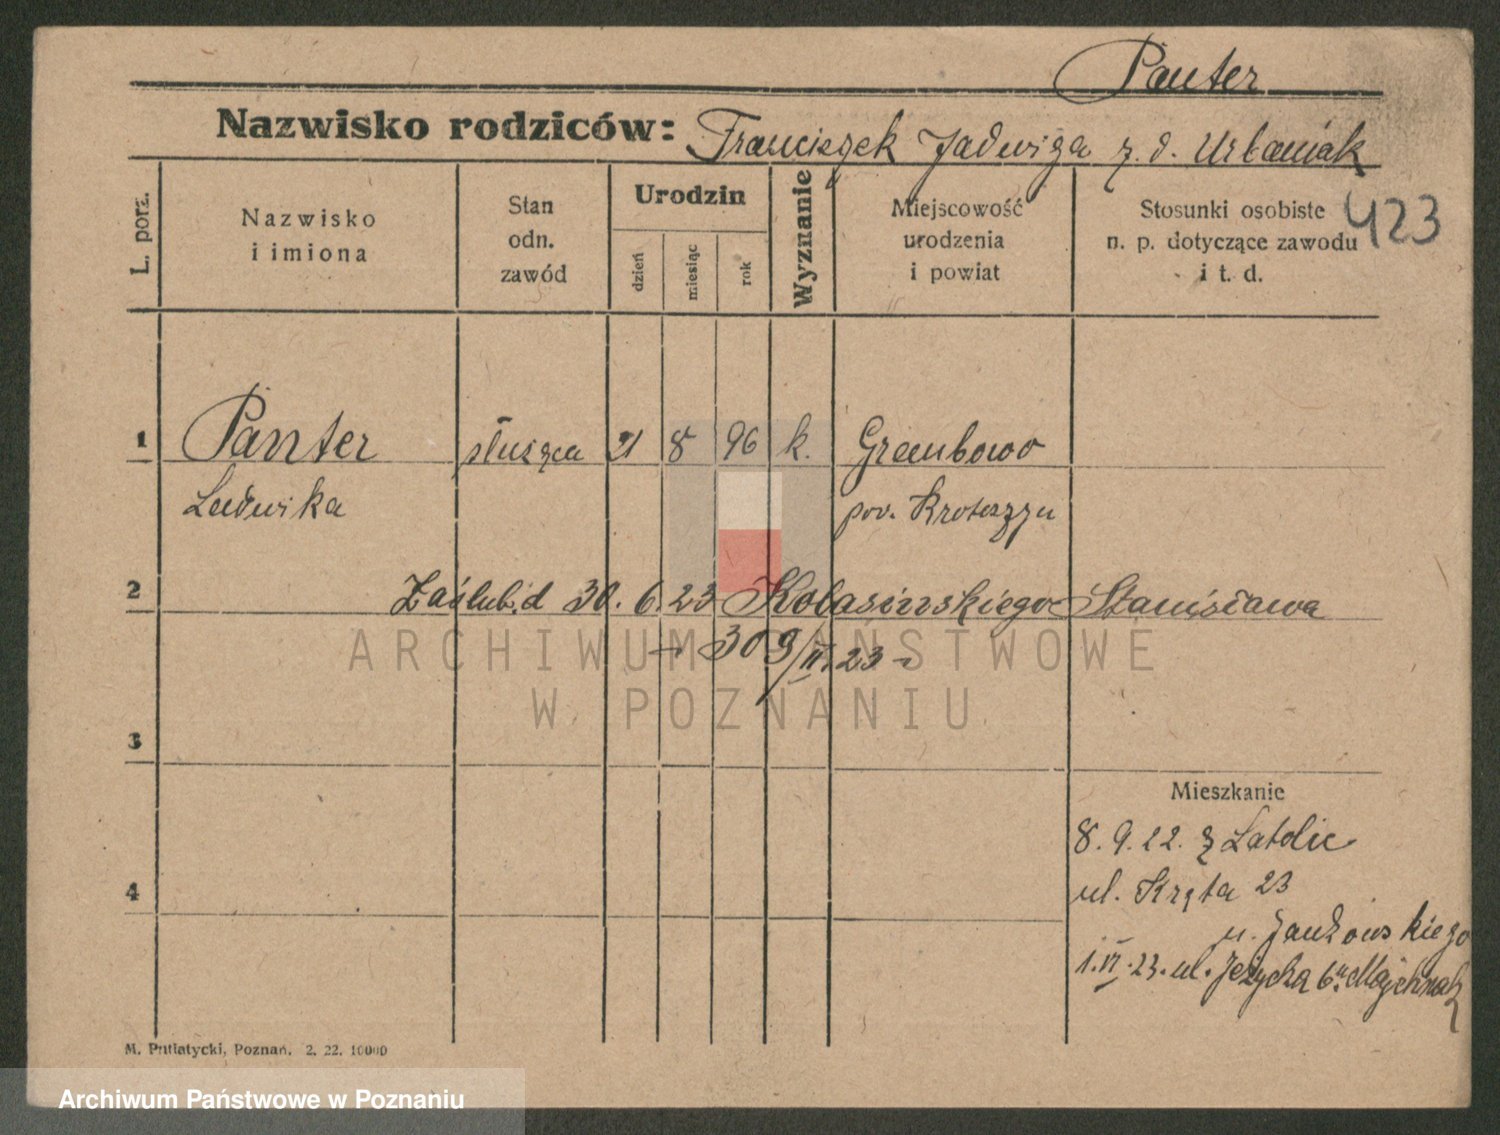 Panter
Nazwisko rodziców: Franciszek Jadwiga z. d. Urbaniak
L. porz.
Nazwisko
i imiona
Stan
odn.
zawód
Urodzin
dzień
miesiąc
rok
Wyznanie
Miejscowość
urodzenia
i powiat
Stosunki osobiste
n. p. dotyczące zawodu
i t. d.
423
1 Panter służąca 21 8 96 k. Grembowo
Ludwika pov. Krotoszyn
2 Zaślub. d 30. 6. 23 Kolasinskiego Stanisława
309/VI. 23
ARCHIWUM PAŃSTWOWE
W POZNANIU
3
Mieszkanie
8. 9. 22. z Latolic
4 ul. Kręta 23
u. Jankowskiego
1. VI. 23. ul. Jeżycka 6 u. Majchrzak
M. Putiatycki, Poznań. 2. 22. 10000
Archiwum Państwowe w Poznaniu